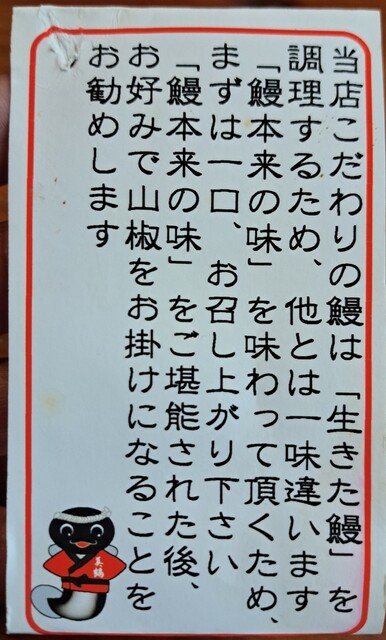 当店こだわりの鰻は「生きた鰻」を
調理するため、他とは一味違います
「鰻本来の味」を味わって頂くため、
まずは一口、お召し上がり下さい
「鰻本来の味」をご堪能された後、
お好みで山椒をお掛けになることを
お勧めします
美鶴